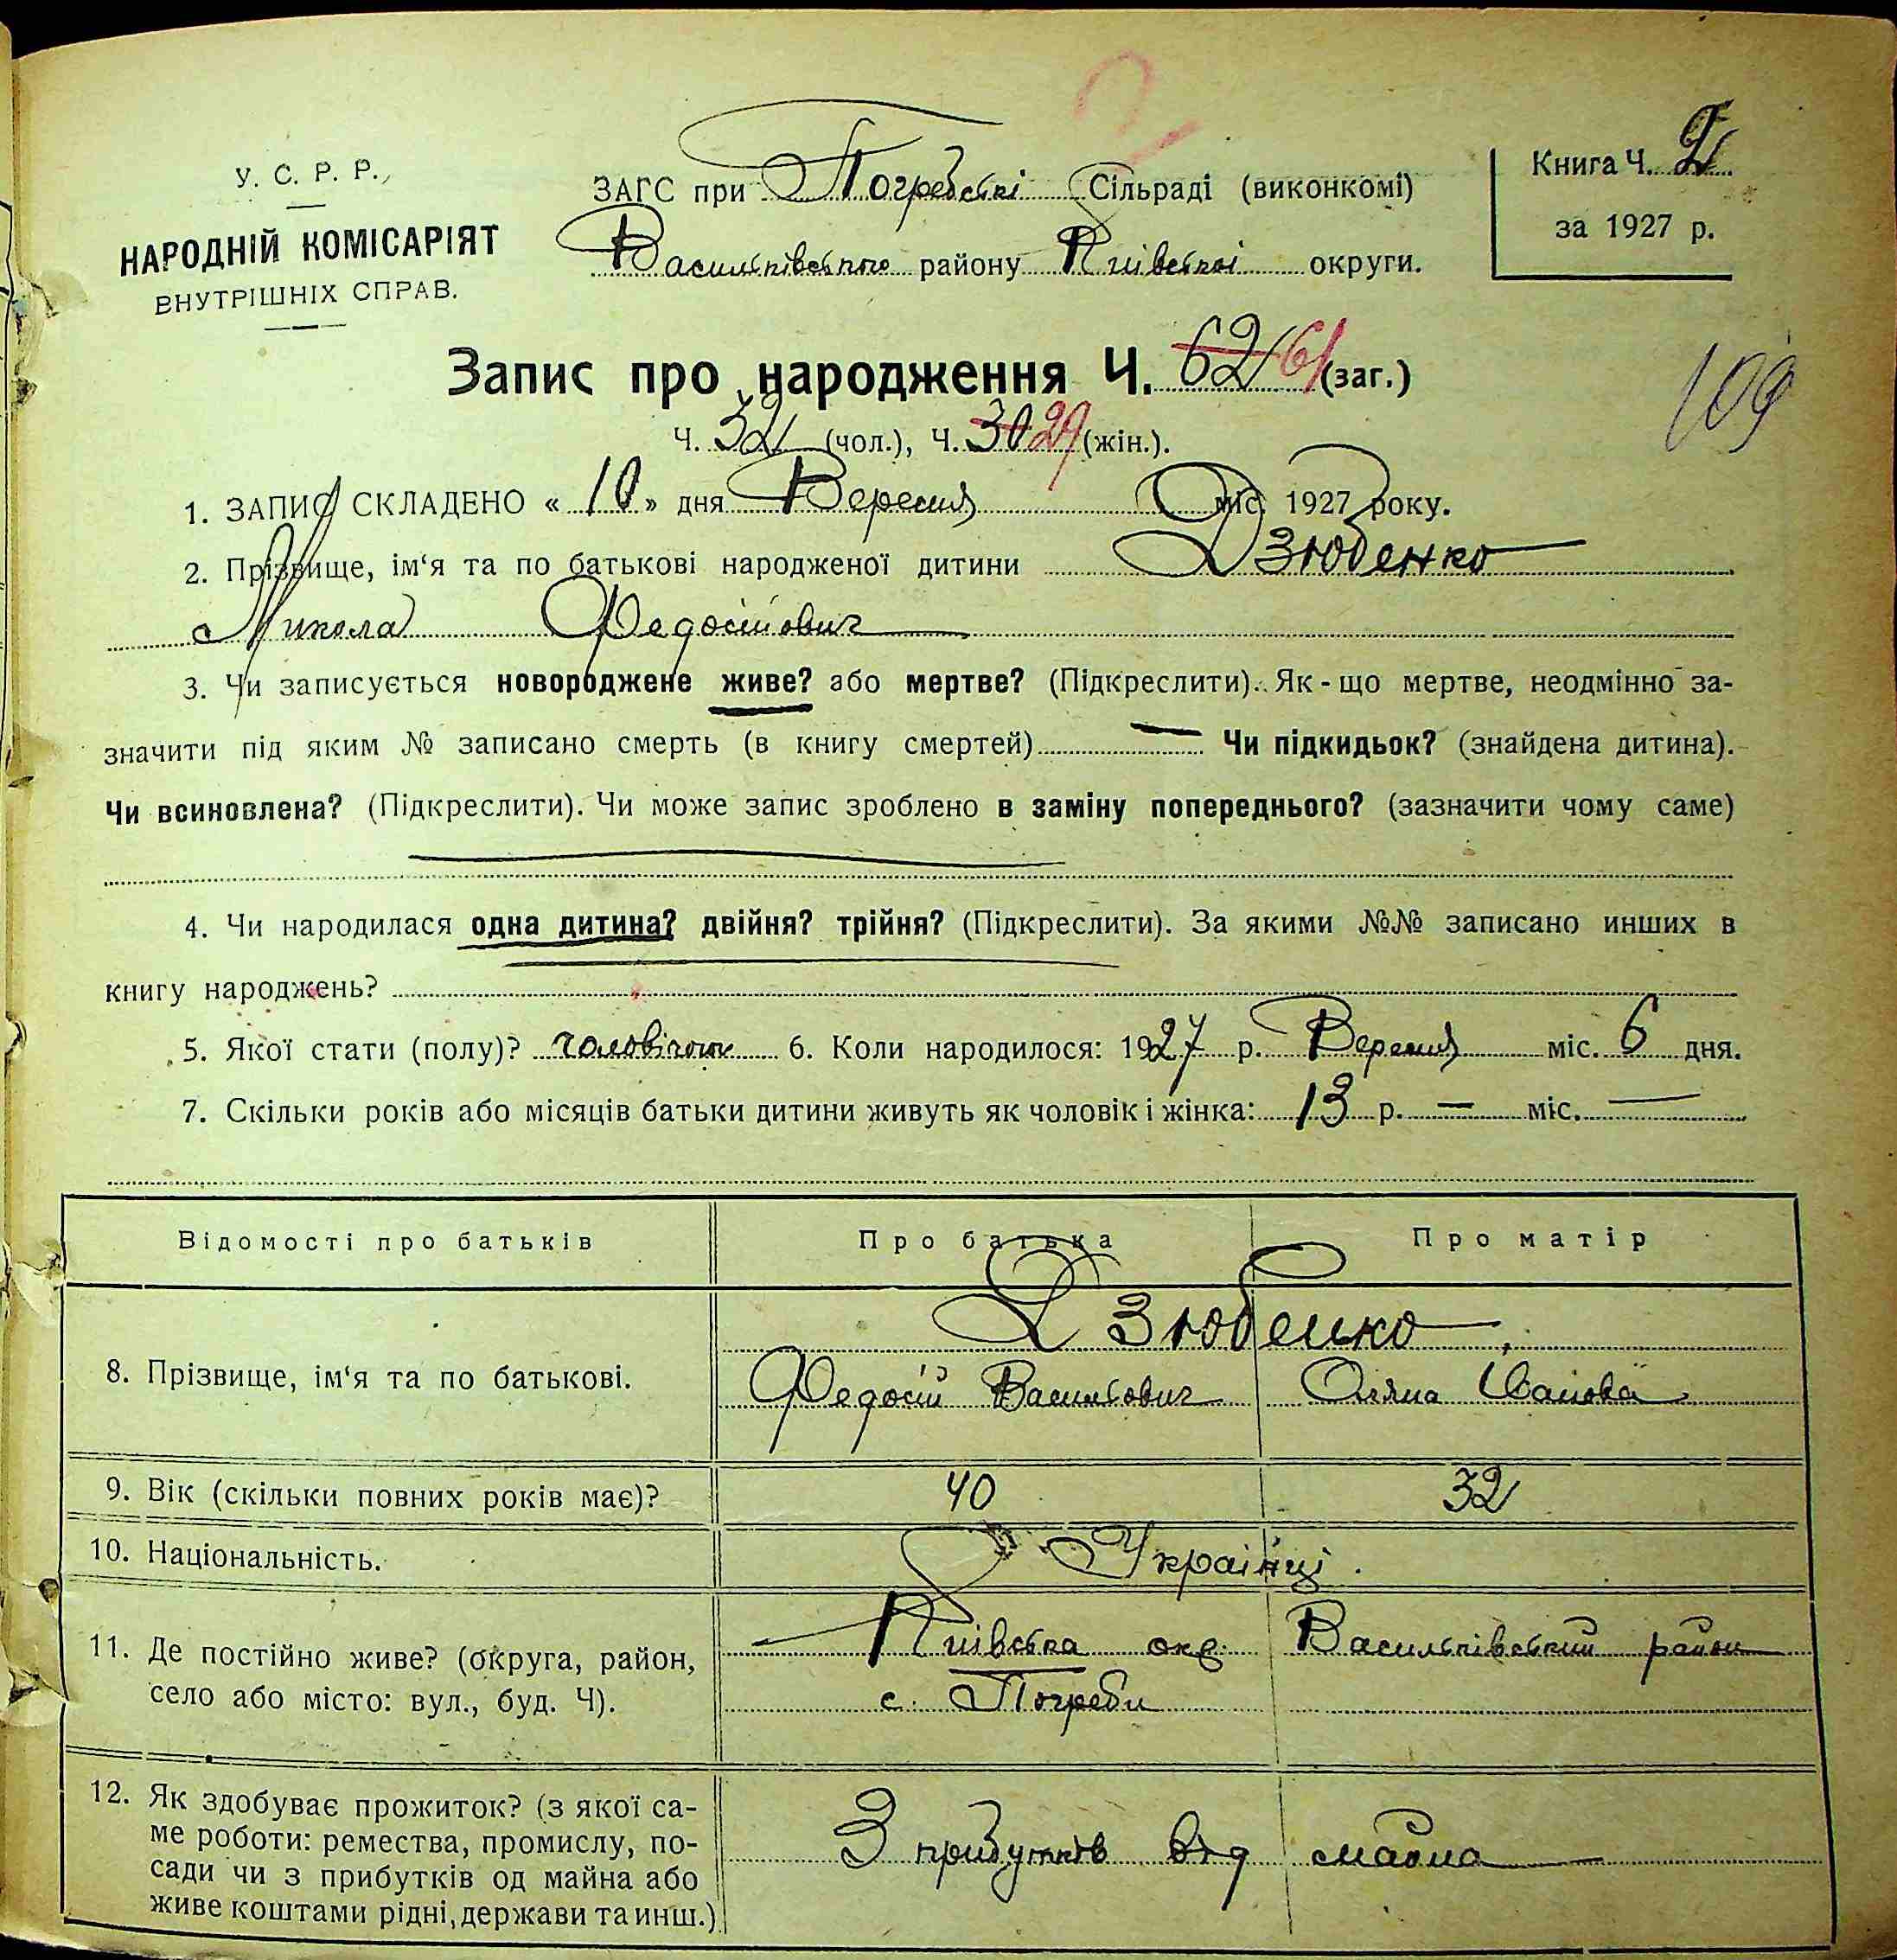 У. С. Р. Р.
НАРОДНІЙ КОМІСАРІЯТ
ВНУТРІШНІХ СПРАВ.
ЗАГС при Погребській Сільраді (виконкомі)
Васильківського району Київської округи.
Книга Ч. 2
за 1927 р.
Запис про народження Ч. 62 61 (заг.)
109
Ч. 32 (чол.), Ч. 30 29 (жін.).
1. ЗАПИС СКЛАДЕНО « 10 » дня Вересня міс. 1927 року.
2. Прізвище, ім'я та по батькові народженої дитини Дзюбенко
Микола Федосійович
3. Чи записується новороджене живе? або мертве? (Підкреслити). Як-що мертве, неодмінно за-
значити під яким № записано смерть (в книгу смертей) — Чи підкидьок? (знайдена дитина).
Чи всиновлена? (Підкреслити). Чи може запис зроблено в заміну попереднього? (зазначити чому саме)
4. Чи народилася одна дитина? двійня? трійня? (Підкреслити). За якими №№ записано инших в
книгу народжень?
5. Якої стати (полу)? чоловічої 6. Коли народилося: 1927 р. Вересня міс. 6 дня.
7. Скільки років або місяців батьки дитини живуть як чоловік і жінка: 13 р. — міс. —
Відомості про батьків Про батька Про матір
8. Прізвище, ім'я та по батькові.
Дзюбенко,
Федосій Васильович Оляна Іванова
9. Вік (скільки повних років має)? 40 32
10. Національність. Українці.
11. Де постійно живе? (округа, район,
село або місто: вул., буд. Ч).
Київська окр. Васильківський район
с. Погреби
12. Як здобуває прожиток? (з якої са-
ме роботи: ремества, промислу, по-
сади чи з прибутків од майна або
живе коштами рідні, держави та инш.)
З прибутків від майна